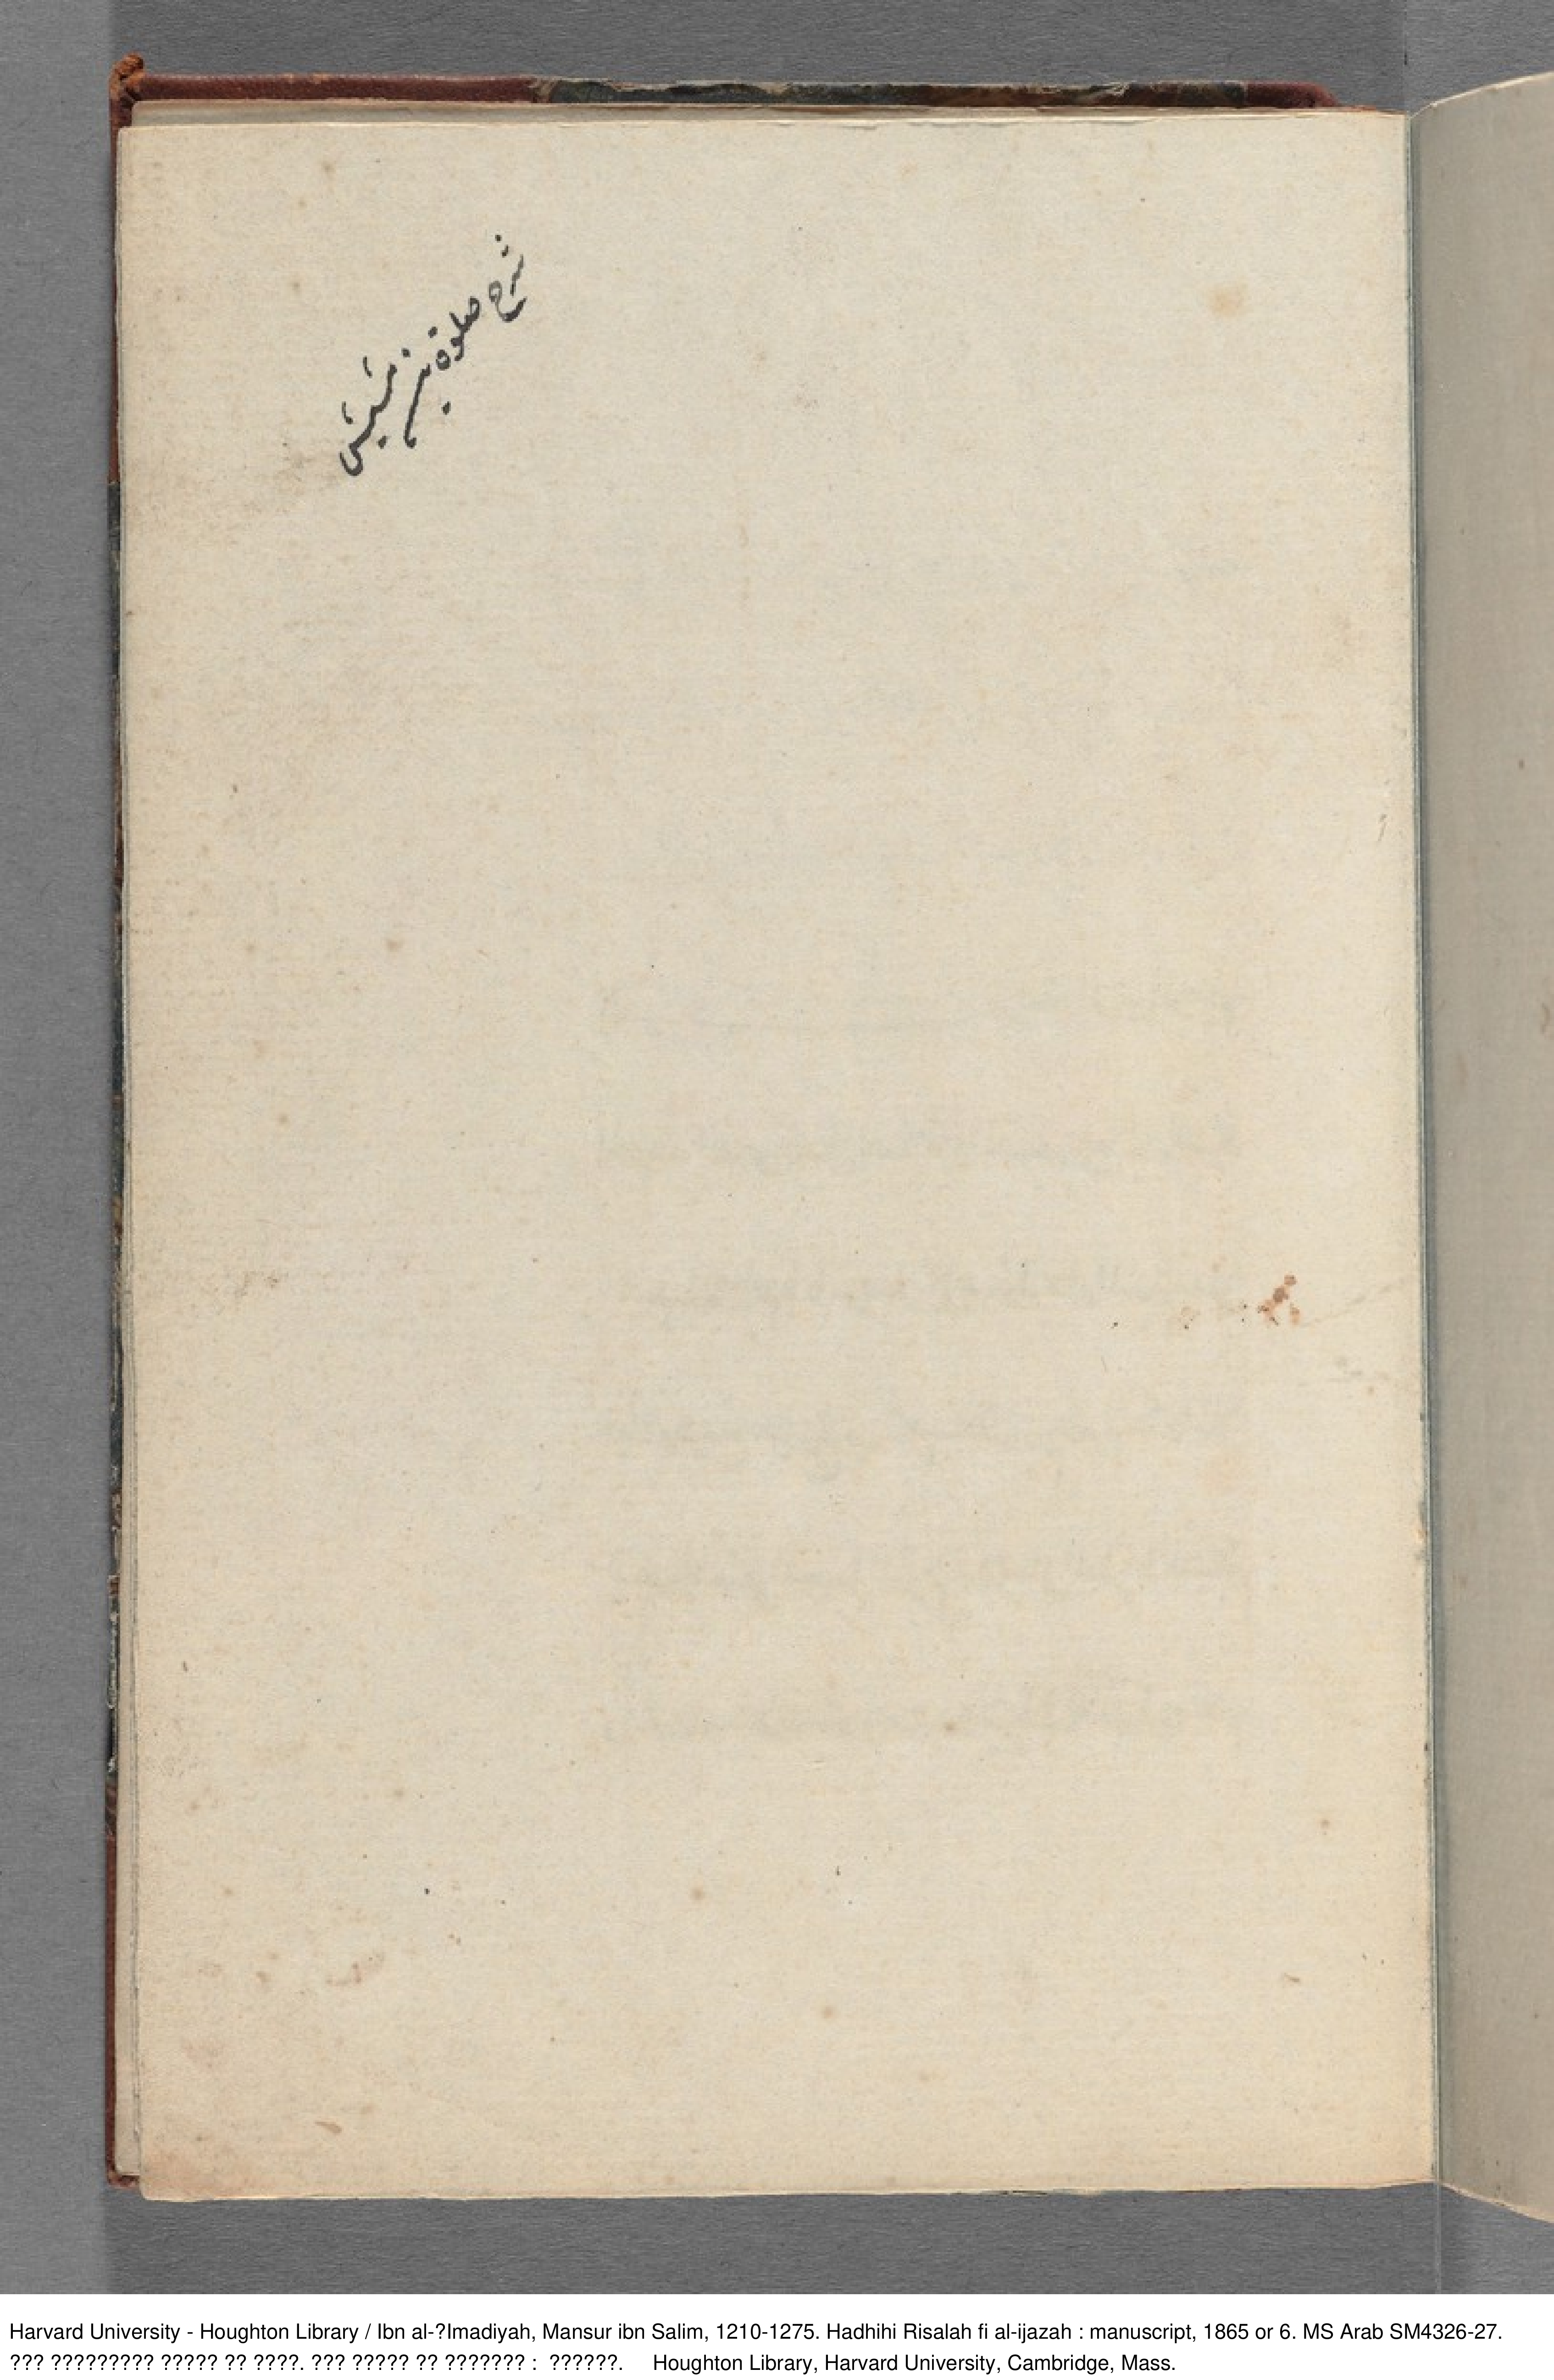 شرح صلوة بن مشيش
Harvard University - Houghton Library / Ibn al-?Imadiyah, Mansur ibn Salim, 1210-1275. Hadhihi Risalah fi al-ijazah : manuscript, 1865 or 6. MS Arab SM4326-27.
??? ????????? ????? ?? ????. ??? ????? ?? ??????? : ??????. Houghton Library, Harvard University, Cambridge, Mass.